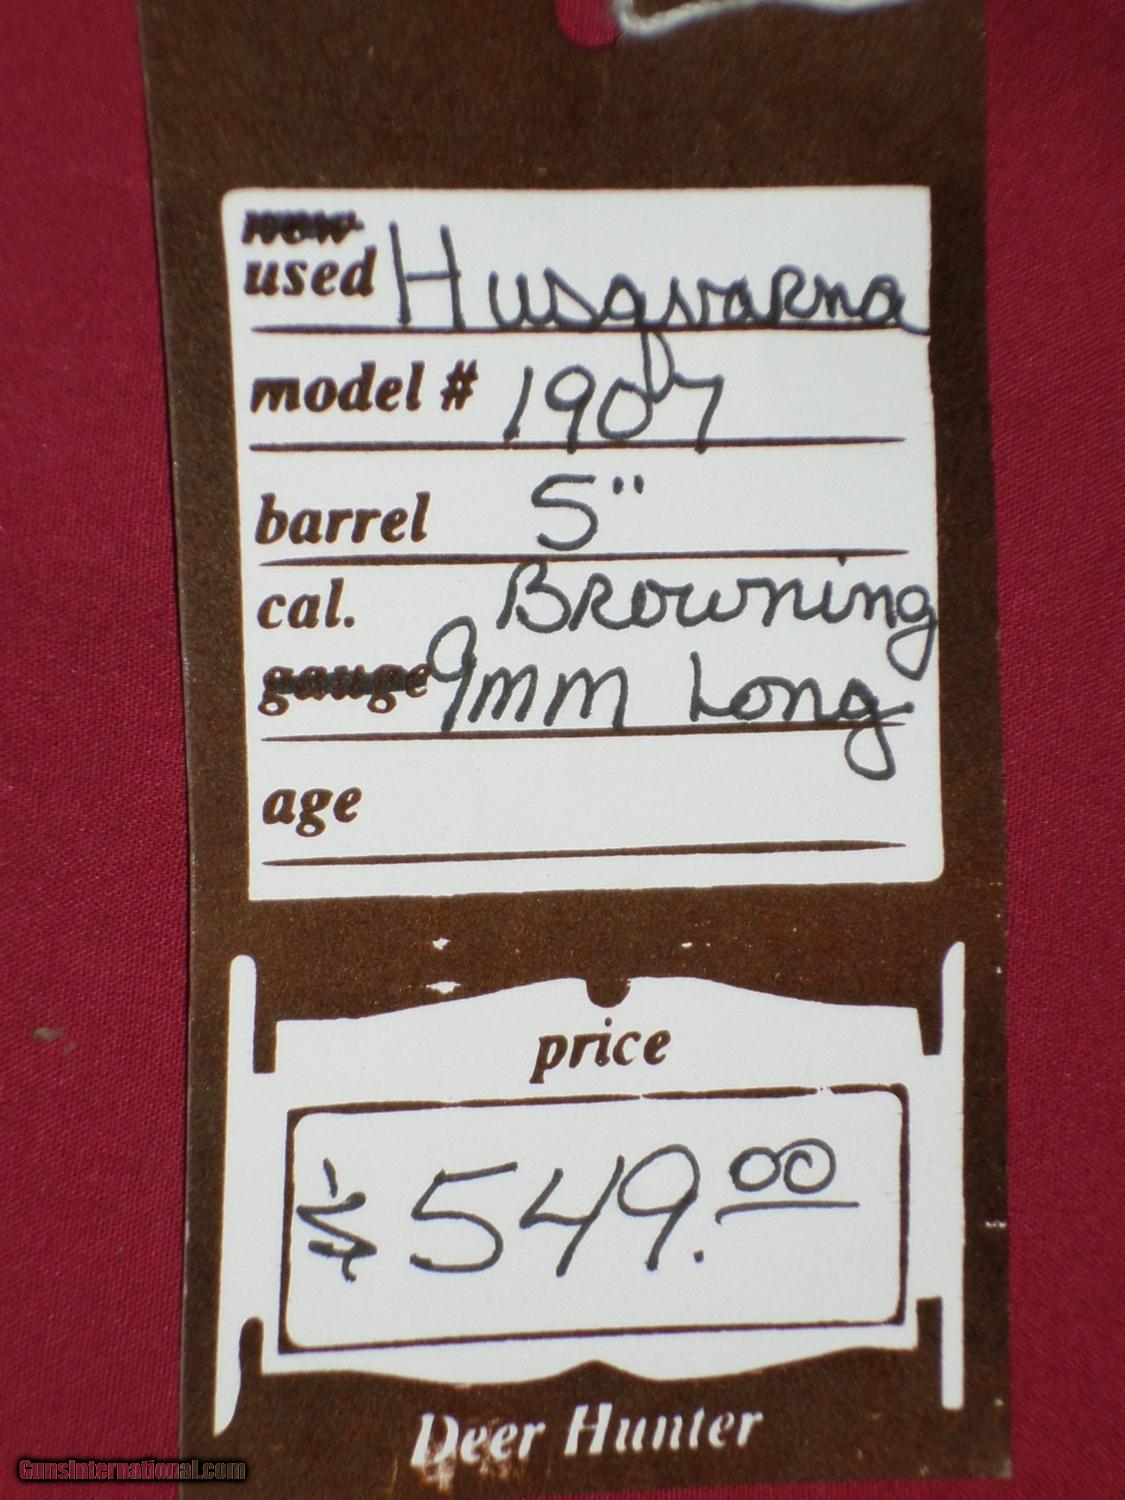 new
used Husqvarna
model # 1907
barrel 5"
cal. Browning
gauge 9mm Long
age
price
$549.00
Deer Hunter
GunsInternational.com